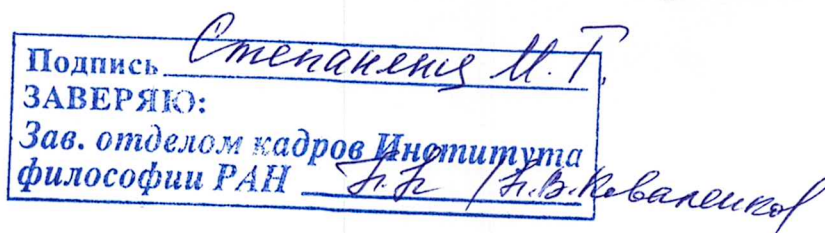 Подпись Степанянц М.Т.
ЗАВЕРЯЮ:
Зав. отделом кадров Института
философии РАН